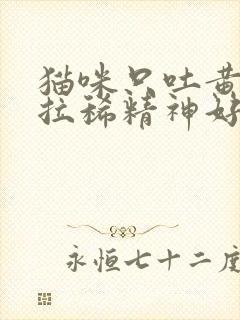 猫咪只吐黄
拉稀精神好
永恒七十二度